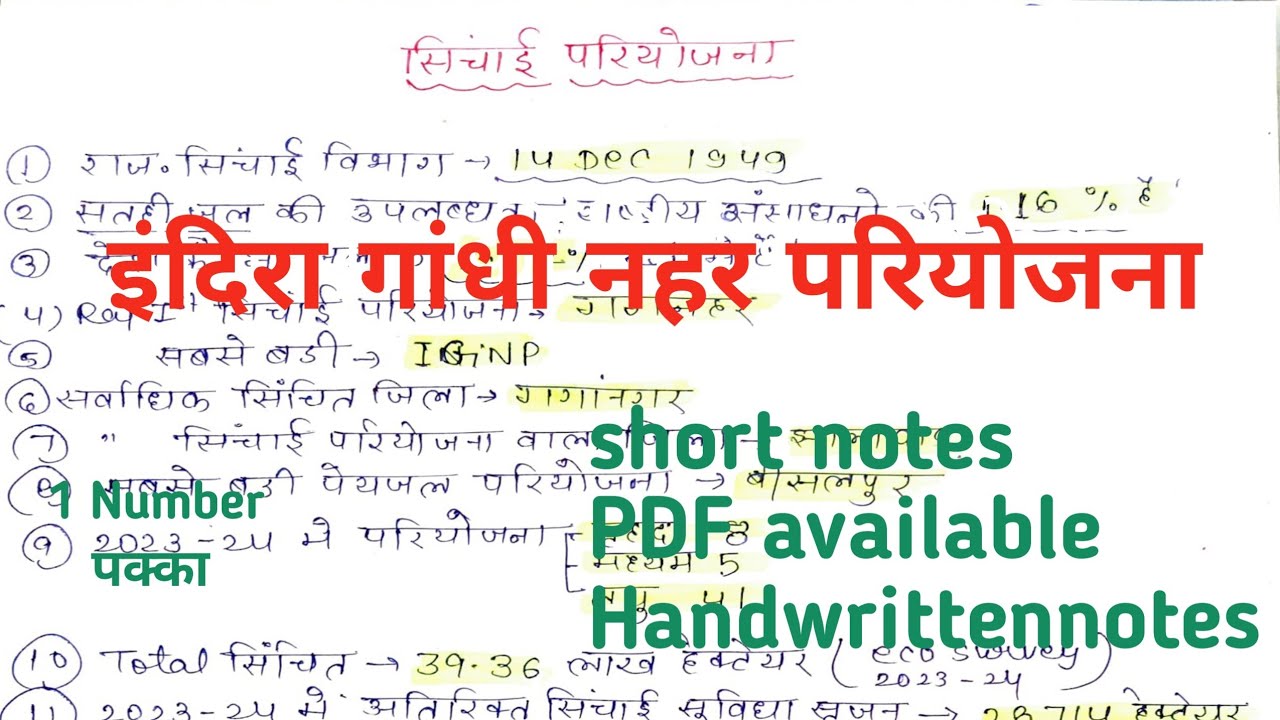 सिंचाई परियोजना
① राज॰ सिंचाई विभाग → 14 Dec 1949
② सतही जल की राष्ट्रीय संसाधनो की 1.16 % है
③
इंदिरा गांधी नहर परियोजना
(4) सिंचाई परियोजना→ गंगनहर
⑤ सबसे बडी → IGNP
⑥ सर्वाधिक सिंचित जिला→ गगांनगर
⑦ " सिंचाई परियोजना
⑧ सबसे बडी पेयजल परियोजना → बीसलपुर
⑨ 2023-24 मे परियोजना
8
मध्यम 5
लघु 41
short notes
PDF available
Handwrittennotes
1 Number
पक्का
⑩ Total सिंचित → 39.36 लाख हेक्टेयर (eco survey
2023-24)
⑪ 2023-24 में अतिरिक्त सिंचाई सुविधा सृजन → हेक्टेयर